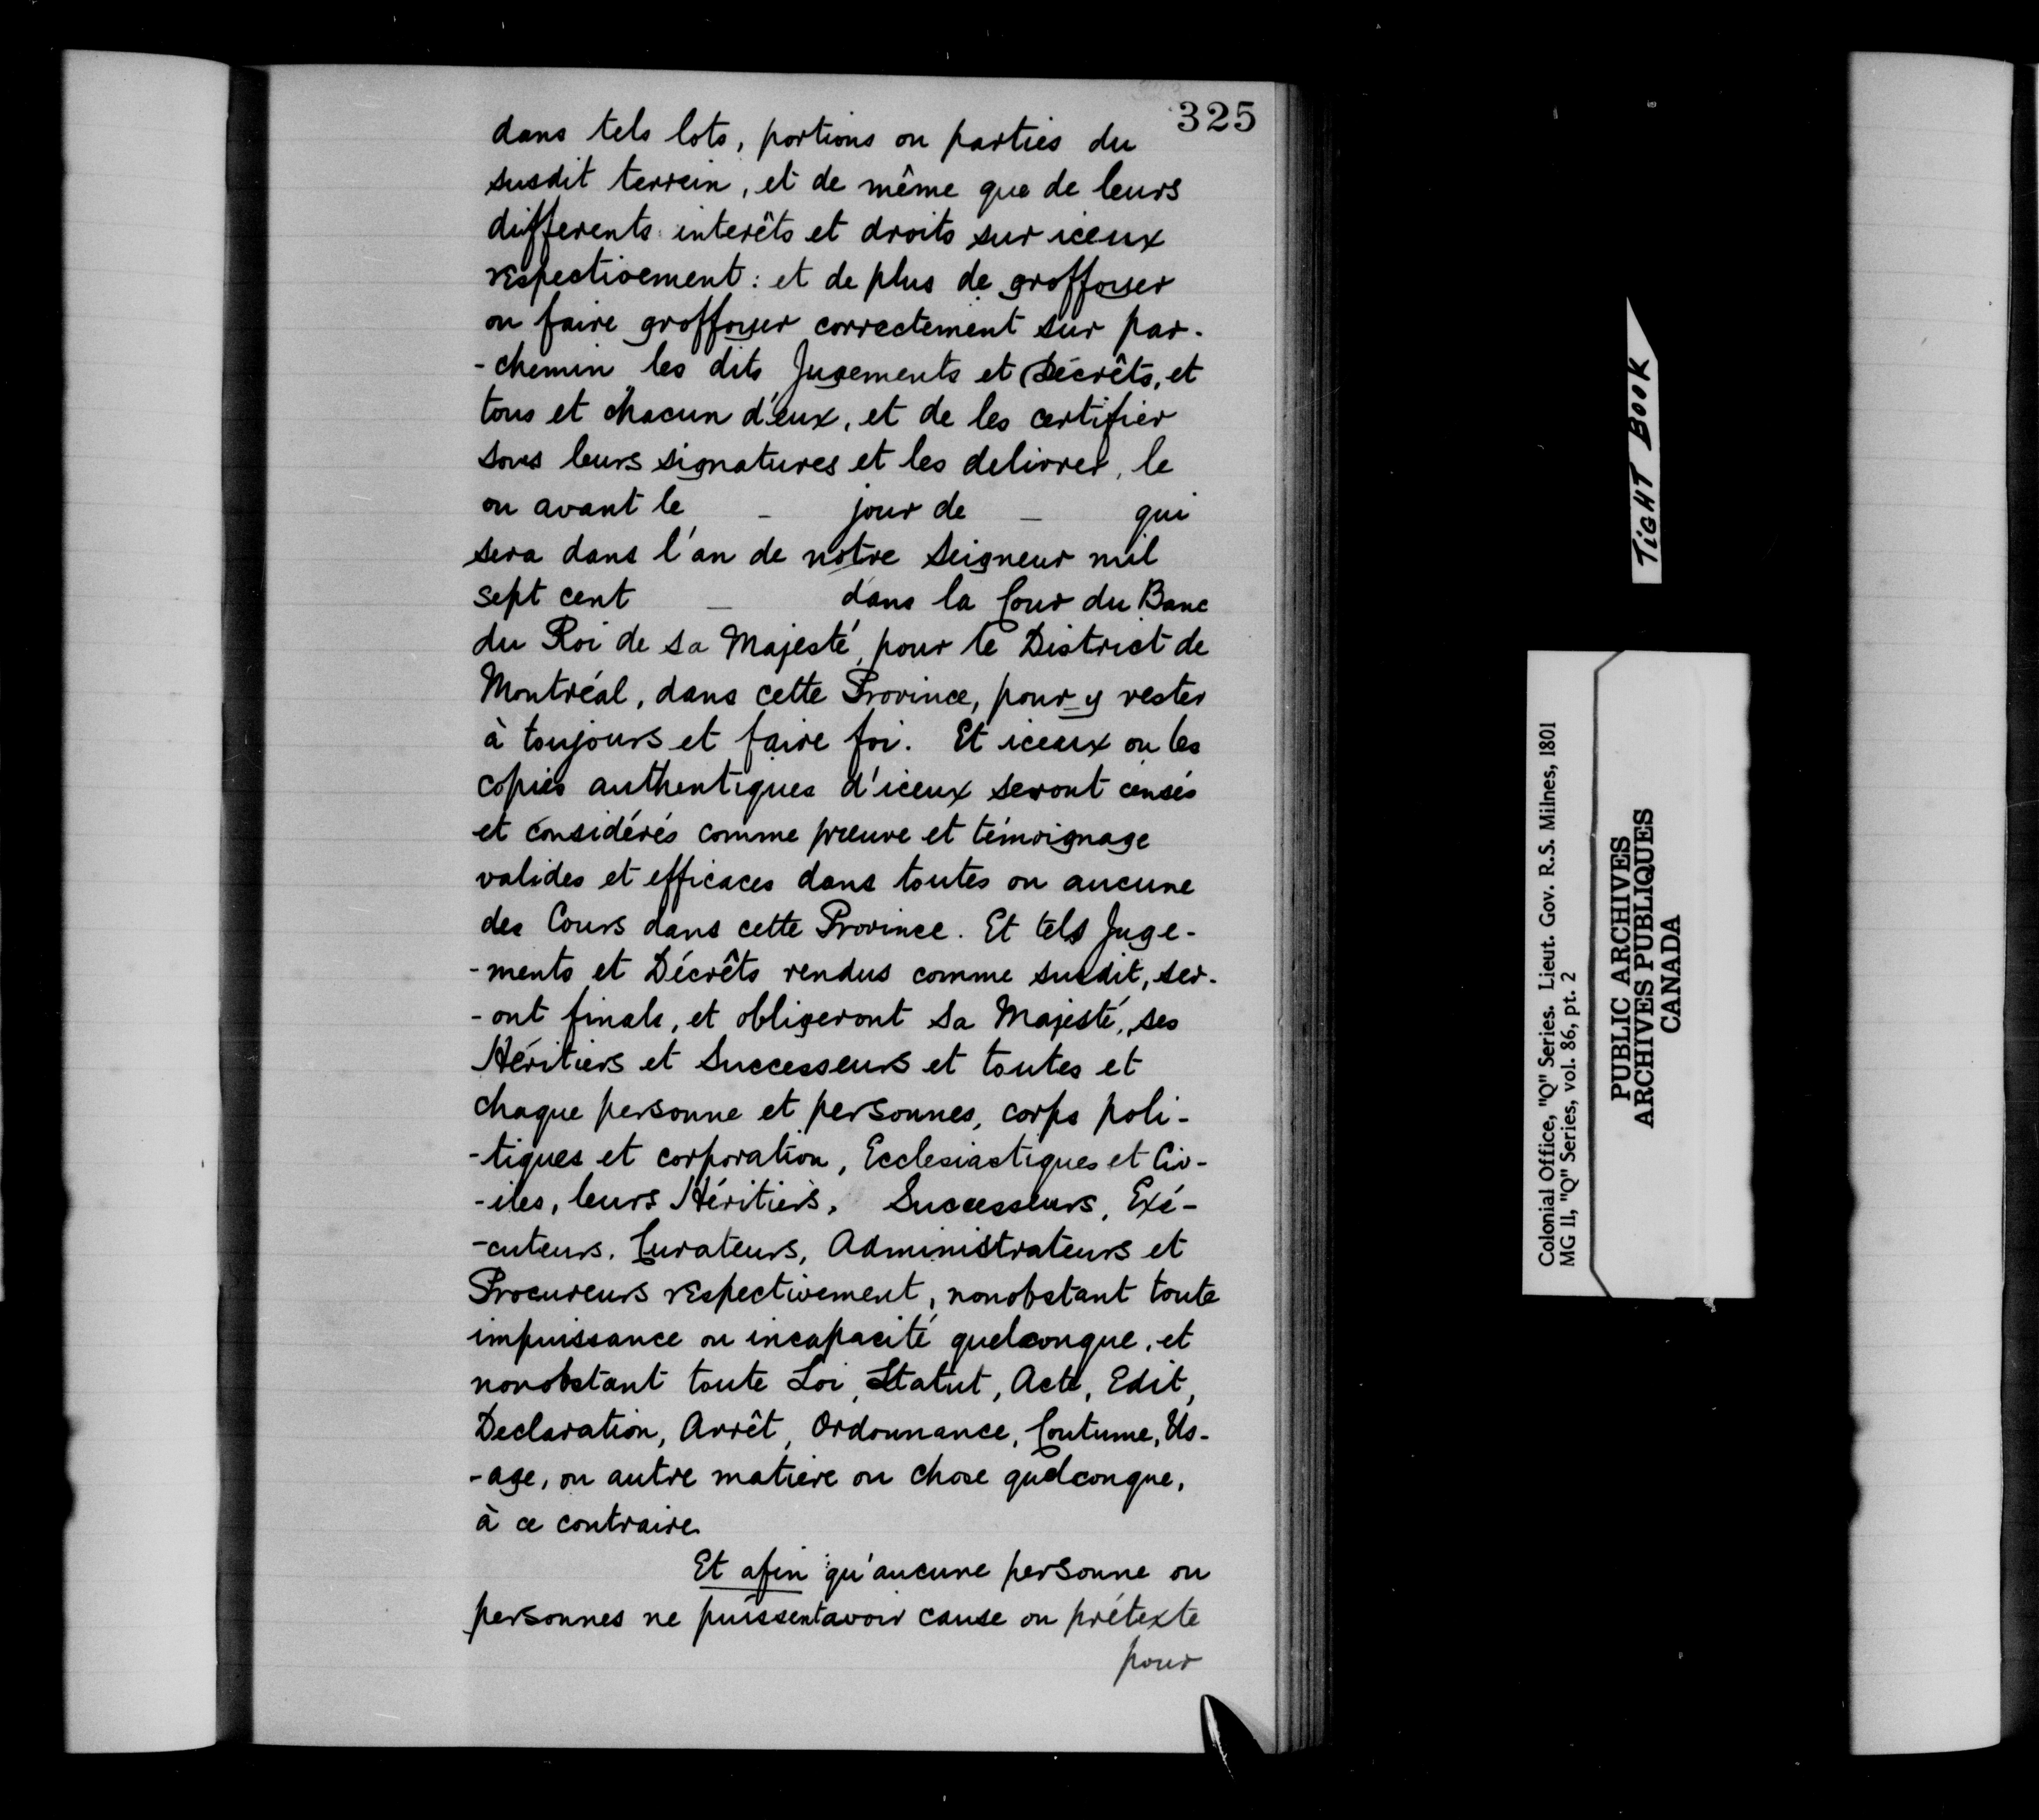 325
dans tels lots, portions ou parties du
susdit terrein, et de même que de leurs
differents interêts et droits sur iceux
respectivement : et de plus de grossoyer
ou faire grossoyer correctement sur par-
-chemin les dits Jugements et Décrêts, et
tous et chacun d'eux, et de les certifier
sous leurs signatures et les delivrer, le
ou avant le _ jour de _ qui
sera dans l'an de notre Seigneur mil
sept cent _ dans la Cour du Banc
du Roi de sa Majesté, pour le District de
Montréal, dans cette Province, pour y rester
à toujours et faire foi. Et iceux ou les
copies authentiques d'iceux seront censés
et considérés comme preuve et témoignage
valides et efficaces dans toutes ou aucune
des Cours dans cette Province. Et tels Juge-
-ments et Décrêts rendus comme susdit, ser-
-ont finals, et obligeront Sa Majesté, ses
Héritiers et Successeurs et toutes et
chaque personne et personnes, corps poli-
-tiques et corporation, Ecclesiastiques et Civ-
-iles, leurs Héritiers, Successeurs, Exé-
-cuteurs, Curateurs, Administrateurs et
Procureurs respectivement, nonobstant toute
impuissance ou incapacité quelconque, et
nonobstant toute Loi, Statut, Acte, Edit,
Declaration, Arrêt, Ordonnance, Coutume, Us-
-age, ou autre matiere ou chose quelconque,
à ce contraire.
Et afin qu'aucune personne ou
personnes ne puissent avoir cause ou prétexte
pour
TIGHT BOOK
Colonial Office, "Q" Series. Lieut. Gov. R.S. Milnes, 1801
MG 11, "Q" Series, vol. 86, pt. 2
PUBLIC ARCHIVES
ARCHIVES PUBLIQUES
CANADA